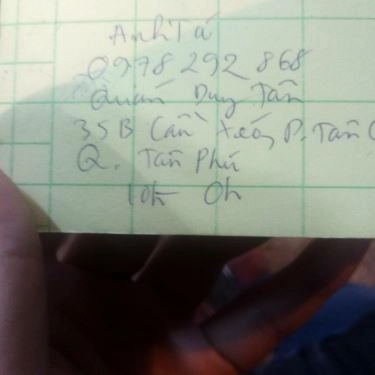 Anh Tá
0978 292 868
Quán Duy Tân
35B Cầu Xéo, P. Tân
Q. Tân Phú
10h 0h